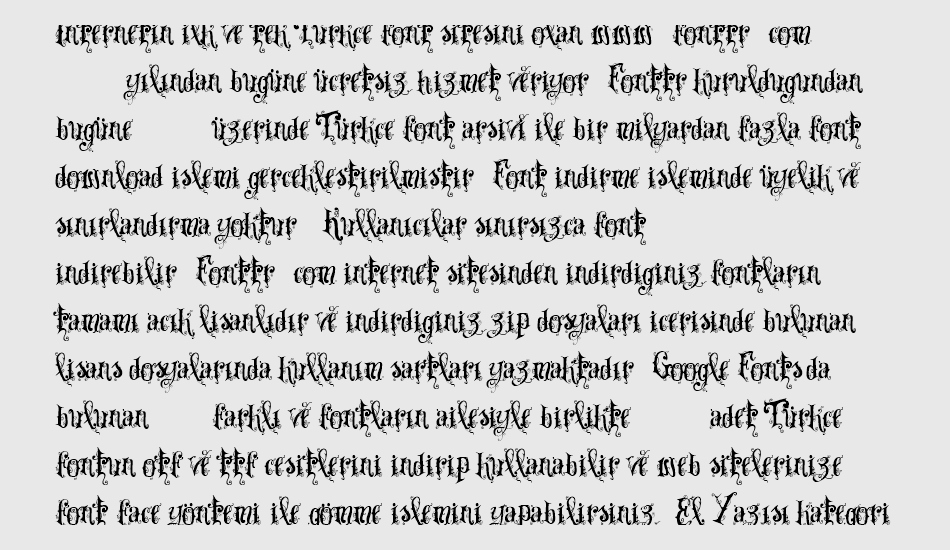 internetin ilk ve tek Türkce font sitesini olan www fonttr com
yılından bugüne ücretsiz hizmet veriyor Fonttr kuruldugundan
bugüne üzerinde Türkce font arsivi ile bir milyardan fazla font
download islemi gerceklestirilmistir Font indirme isleminde üyelik ve
sınırlandırma yoktur Kullanıcılar sınırsızca font
indirebilir Fonttr com internet sitesinden indirdiginiz fontların
tamamı acık lisanlıdır ve indirdiginiz zip dosyaları icerisinde bulunan
lisans dosyalarında kullanım sartları yazmaktadır Google Fontsda
bulunan farklı ve fontların ailesiyle birlikte adet Türkce
fontun otf ve ttf cesitlerini indirip kullanabilir ve web sitelerinize
font face yöntemi ile gömme islemini yapabilirsiniz El Yazısı kategori